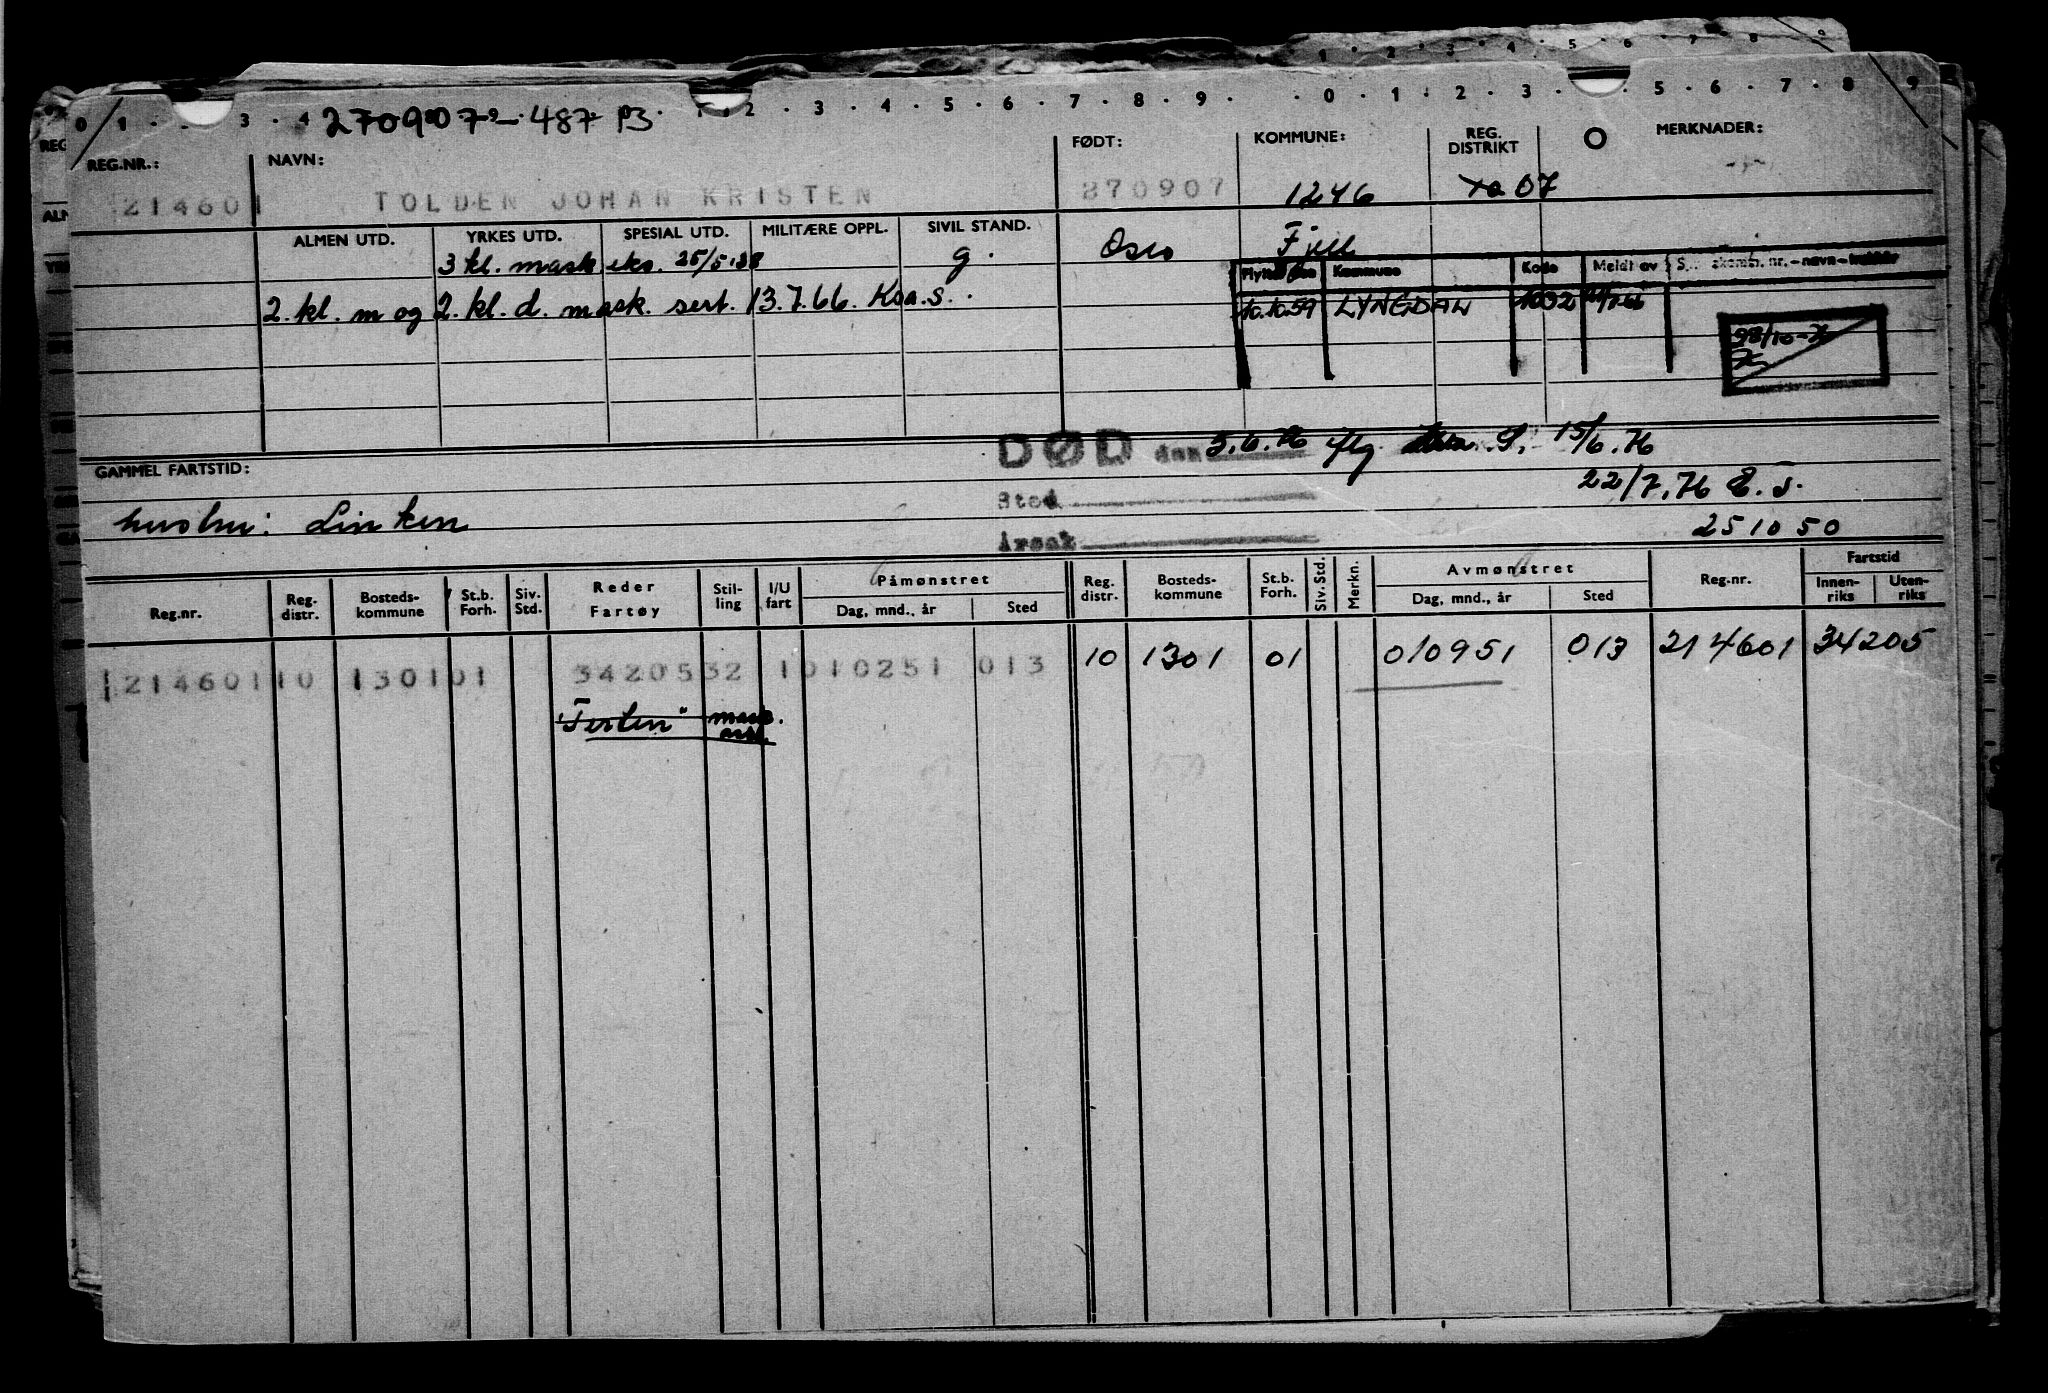 0 1 3 4 270907 - 487 P3 2 3 4 5 6 7 8 9 0 1 2 3 5 6 7 8 9
REG.NR.: NAVN: FØDT: KOMMUNE: REG. DISTRIKT O MERKNADER:
214601 TOLDEN JOHAN KRISTEN 270907 1246 07
ALMEN UTD. YRKES UTD. SPESIAL UTD. MILITÆRE OPPL. SIVIL STAND. Oslo Fjell
3 kl. mask eks. 25/5.38 g.
Kommune Kode Meldt av
2. kl. m og 2. kl. d. mask. sert. 13.7.66. Kra.s. 10.10.59 LYNGDAL 1032
GAMMEL FARTSTID: DØD den 5.6.76 iflg 15/6.76
Sted 22/7.76 E.S.
Årsak 251050
Reg.nr. Reg. distr. Bosteds- kommune St.b. Forh. Siv. Std. Reder Fartøy Stil- ling I/U fart Påmønstret Dag, mnd., år Sted Reg. distr. Bosteds- kommune St.b. Forh. Siv. Std. Merkn. Avmønstret Dag, mnd., år Sted Reg.nr. Fartstid Innen- riks Uten- riks
214601 10 1301 01 34205 32 1 010251 013 10 1301 01 010951 013 214601 34205
"Ferlen" mask. ass.